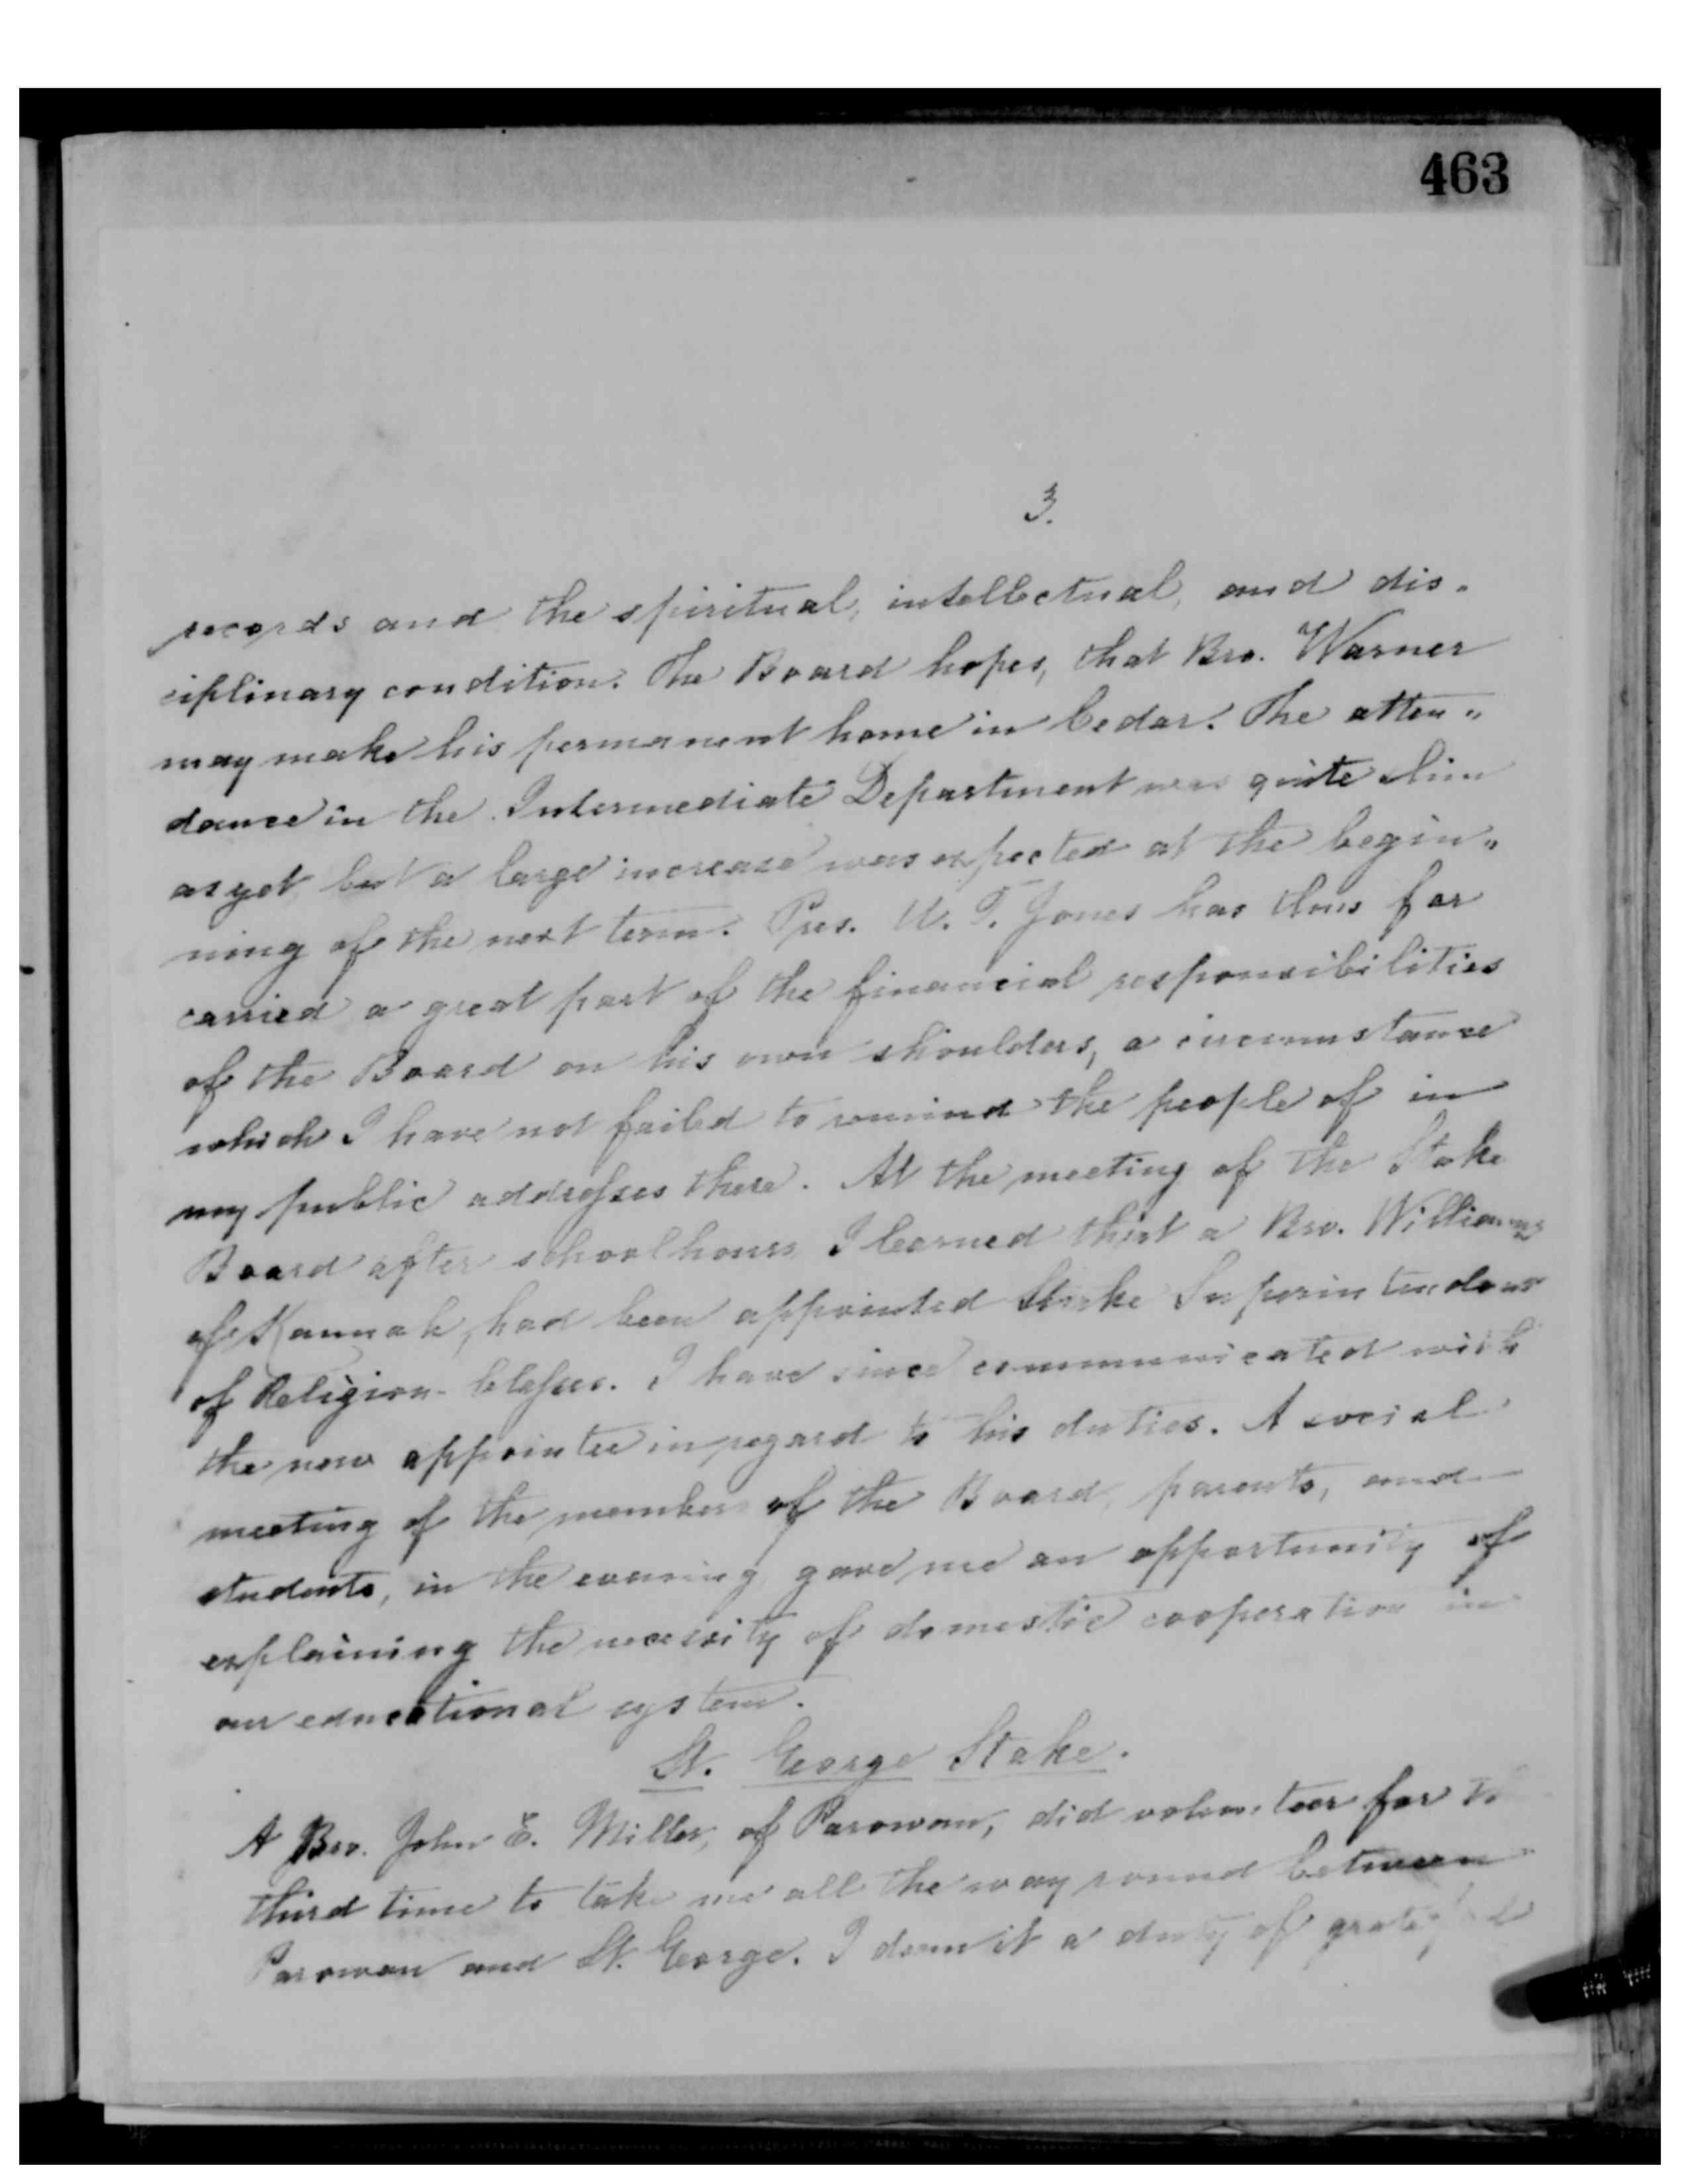 463
3.
records and the spiritual, intellectual, and dis-
ciplinary condition. The Board hopes, that Bro. Warner
may make his permanent home in Cedar. The atten-
dance in the Intermediate Department was quite slim
as yet, but a large increase was expected at the begin-
ning of the next term. Pres. U. T. Jones has thus far
carried a great part of the financial responsibilities
of the Board on his own shoulders, a circumstance
which I have not failed to remind the people of in
my public addresses there. At the meeting of the Stake
Board after school hours I learned that a Bro. Williams
of Kannah, had been appointed Stake Superintendent
of Religion-Classes. I have since communicated with
the new appointee in regard to his duties. A social
meeting of the members of the Board, parents, and
students, in the evening gave me an opportunity of
explaining the necessity of domestic cooperation in
our educational system.
St. George Stake.
A Bro. John E. Miller, of Parowan, did volunteer for the
third time to take me all the way round between
Parowan and St. George. I deem it a duty of